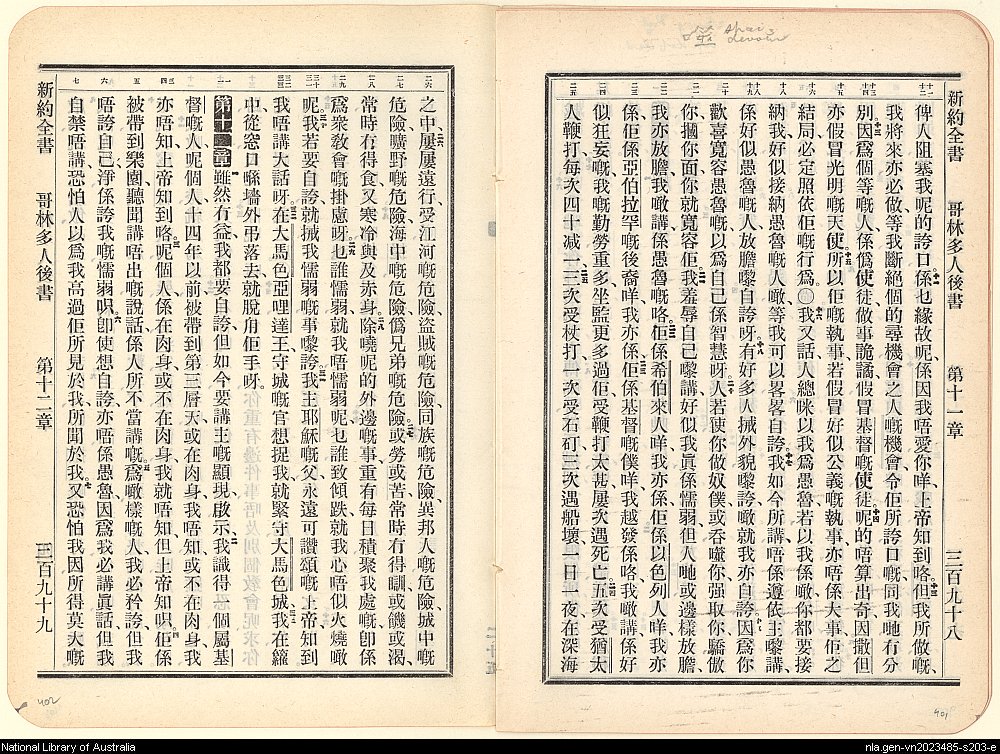 噬 devour
新約全書 哥林多人後書 第十一章 三百九十八
俾人阻塞我呢的誇口係乜緣故呢係因我唔愛你咩上帝知到咯但我所做嘅
我將來亦必做等我斷絕個的尋機會之人嘅機會令佢所誇口嘅同我哋冇分
別因爲個等嘅人係僞使徒做事詭譎假冒基督嘅使徒呢的唔算出奇因撒但
亦假冒光明嘅天使所以佢嘅執事若假冒好似公義嘅執事亦唔係大事佢之
結局必定照依佢嘅行爲○我又話人總咪以我爲愚魯若以我係噉你都要接
納我好似接納愚魯嘅人噉等我可以畧畧自誇我如今所講唔係遵依主嚟講
係好似愚魯嘅人放膽嚟自誇呀有好多人𢬿外貌嚟誇噉就我亦自誇因爲你
歡喜寬容愚魯嘅以爲自己係智慧呀人若使你做奴僕或吞噬你强取你驕傲
你摑你面你就寬容佢我羞辱自己嚟講好似我眞係懦弱但人哋或邊樣放膽
我亦放膽我噉講係愚魯嘅咯佢係希伯來人咩我亦係佢係以色列人咩我亦
係佢係亞伯拉罕嘅後裔咩我亦係佢係基督嘅僕咩我越發係咯我噉講係好
似狂妄嘅我嘅勤勞重多坐監更多過佢受鞭打太甚屢次遇死亡五次受猶太
人鞭打每次四十减一三次受杖打一次受石矴三次遇船壞一日一夜在深海
新約全書 哥林多人後書 第十二章 三百九十九
之中屢屢遠行受江河嘅危險盜賊嘅危險同族嘅危險異邦人嘅危險城中嘅
危險曠野嘅危險海中嘅危險僞兄弟嘅危險或勞或苦常時冇得瞓或饑或渴
常時冇得食又寒冷與及赤身除曉呢的外邊嘅事重有每日積聚我處嘅卽係
爲衆敎會嘅掛慮呀乜誰懦弱就我唔懦弱呢乜誰致傾跌就我心唔似火燒噉
呢我若要自誇就𢬿我懦弱嘅事嚟誇我主耶穌嘅父永遠可讚頌嘅上帝知到
我唔講大話呀在大馬色亞哩達王守城嘅官想捉我就緊守大馬色城我在籮
中從窓口喺墻外弔落去就脫甪佢手呀
第十二章雖然冇益我都要自誇但如今要講主嘅顯現啟示我識得一個屬基
督嘅人呢個人十四年以前被帶到第三層天或在肉身我唔知或不在肉身我
亦唔知上帝知到咯呢個人係在肉身或不在肉身我就唔知但上帝知呮佢係
被帶到樂園聽聞講唔出嘅說話係人所不當講嘅爲噉樣嘅人我必矜誇但我
唔誇自己淨係誇我嘅懦弱呮卽使想自誇亦唔係愚魯因爲我必講眞話但我
自禁唔講恐怕人以爲我高過佢所見於我所聞於我又恐怕我因所得莫大嘅
402
401
National Library of Australia
nla.gen-vn2023485-s203-e